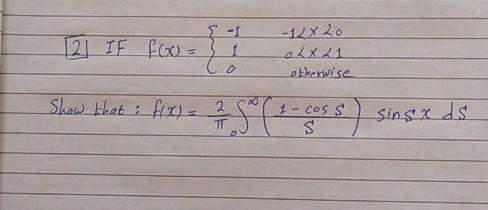 [2] IF f(x) = { -1   -1<x<0
1   0<x<1
0   otherwise
Show that : f(x) = 2/π ₀∫^∞ ( 1 - cos s / s ) sin s x ds